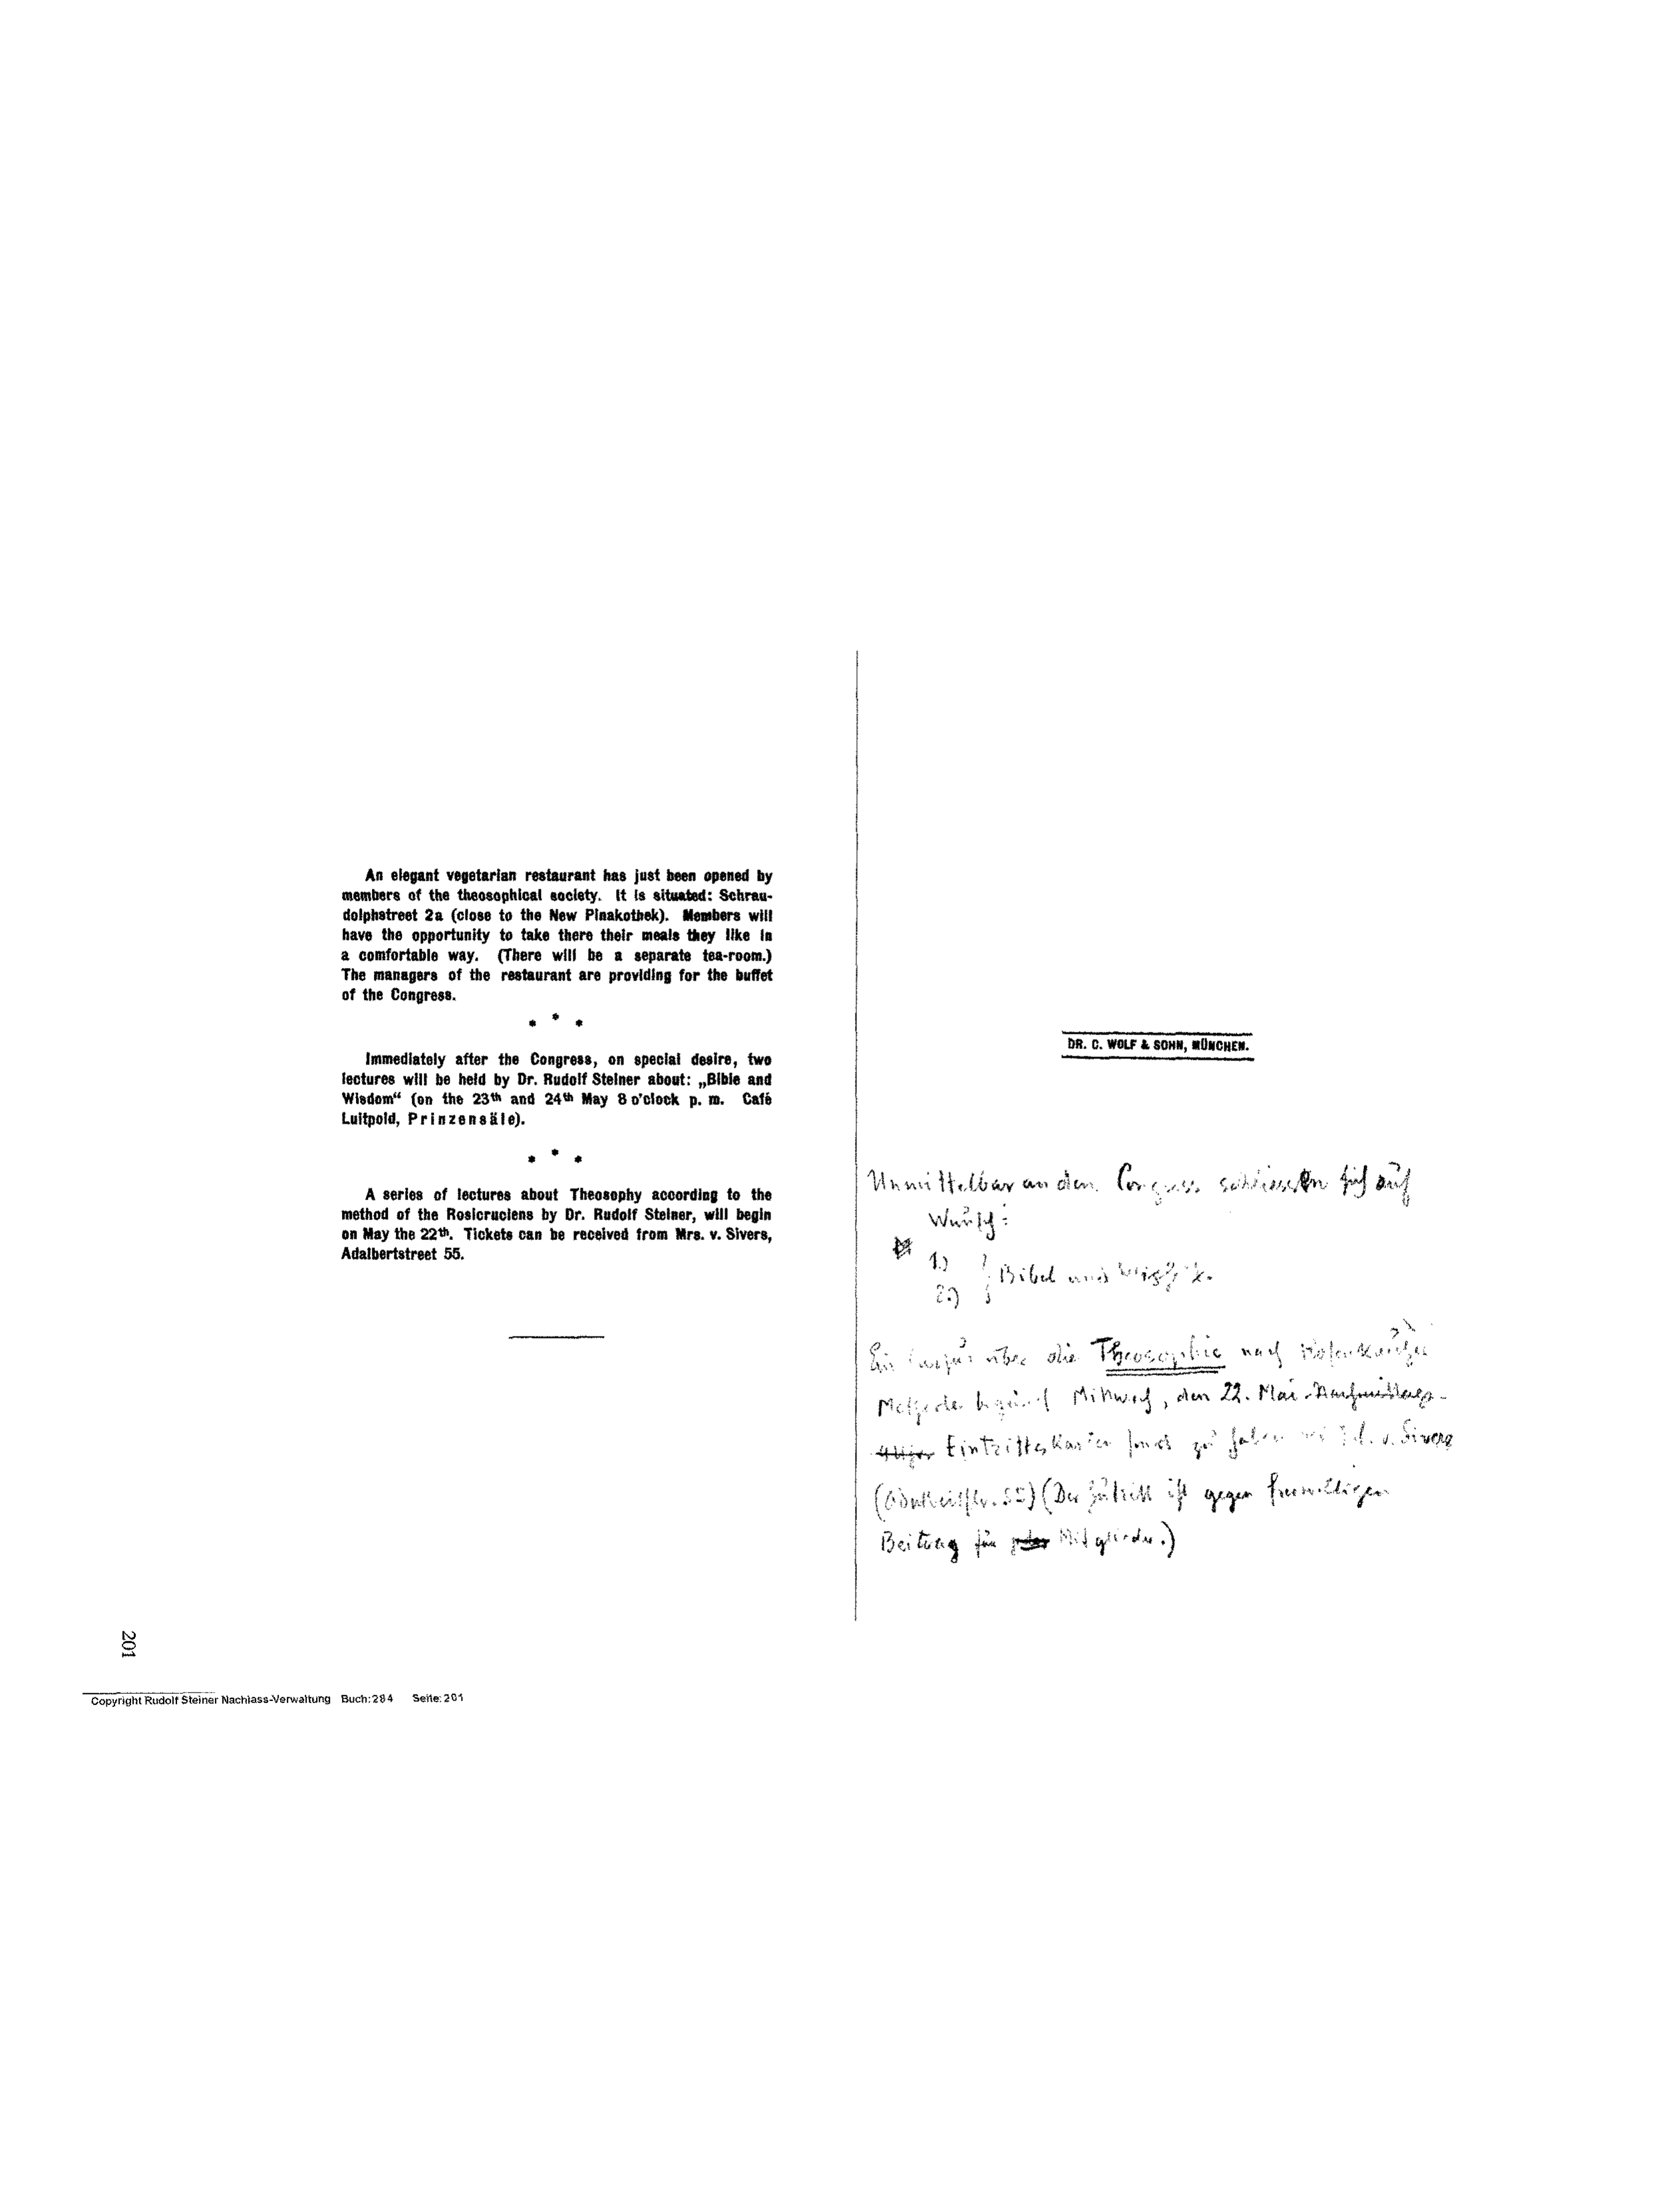 An elegant vegetarian restaurant has just been opened by
members of the theosophical society. It is situated: Schrau-
dolphstreet 2a (close to the New Pinakothek). Members will
have the opportunity to take there their meals they like in
a comfortable way. (There will be a separate tea-room.)
The managers of the restaurant are providing for the buffet
of the Congress.
* * *
Immediately after the Congress, on special desire, two
lectures will be held by Dr. Rudolf Steiner about: „Bible and
Wisdom“ (on the 23th and 24th May 8 o'clock p. m. Café
Luitpold, Prinzensäle).
* * *
A series of lectures about Theosophy according to the
method of the Rosicruciens by Dr. Rudolf Steiner, will begin
on May the 22th. Tickets can be received from Mrs. v. Sivers,
Adalbertstreet 55.
DR. C. WOLF & SOHN, MÜNCHEN.
Unmittelbar an den Congress schliessen sich auf
Wunsch:
1.)
2.) } Bibel und
über die Theosophie nach
Methode beginnt Mittwoch, den 22. Mai Nachmittags-
Eintrittskarten sind zu haben bei Frl. v. Sivers
(Adalbertstr. 55) (Der Zutritt ist gegen freiwilligen
Beitrag für Mitglieder.)
201
Copyright Rudolf Steiner Nachlass-Verwaltung Buch: 284 Seite: 201